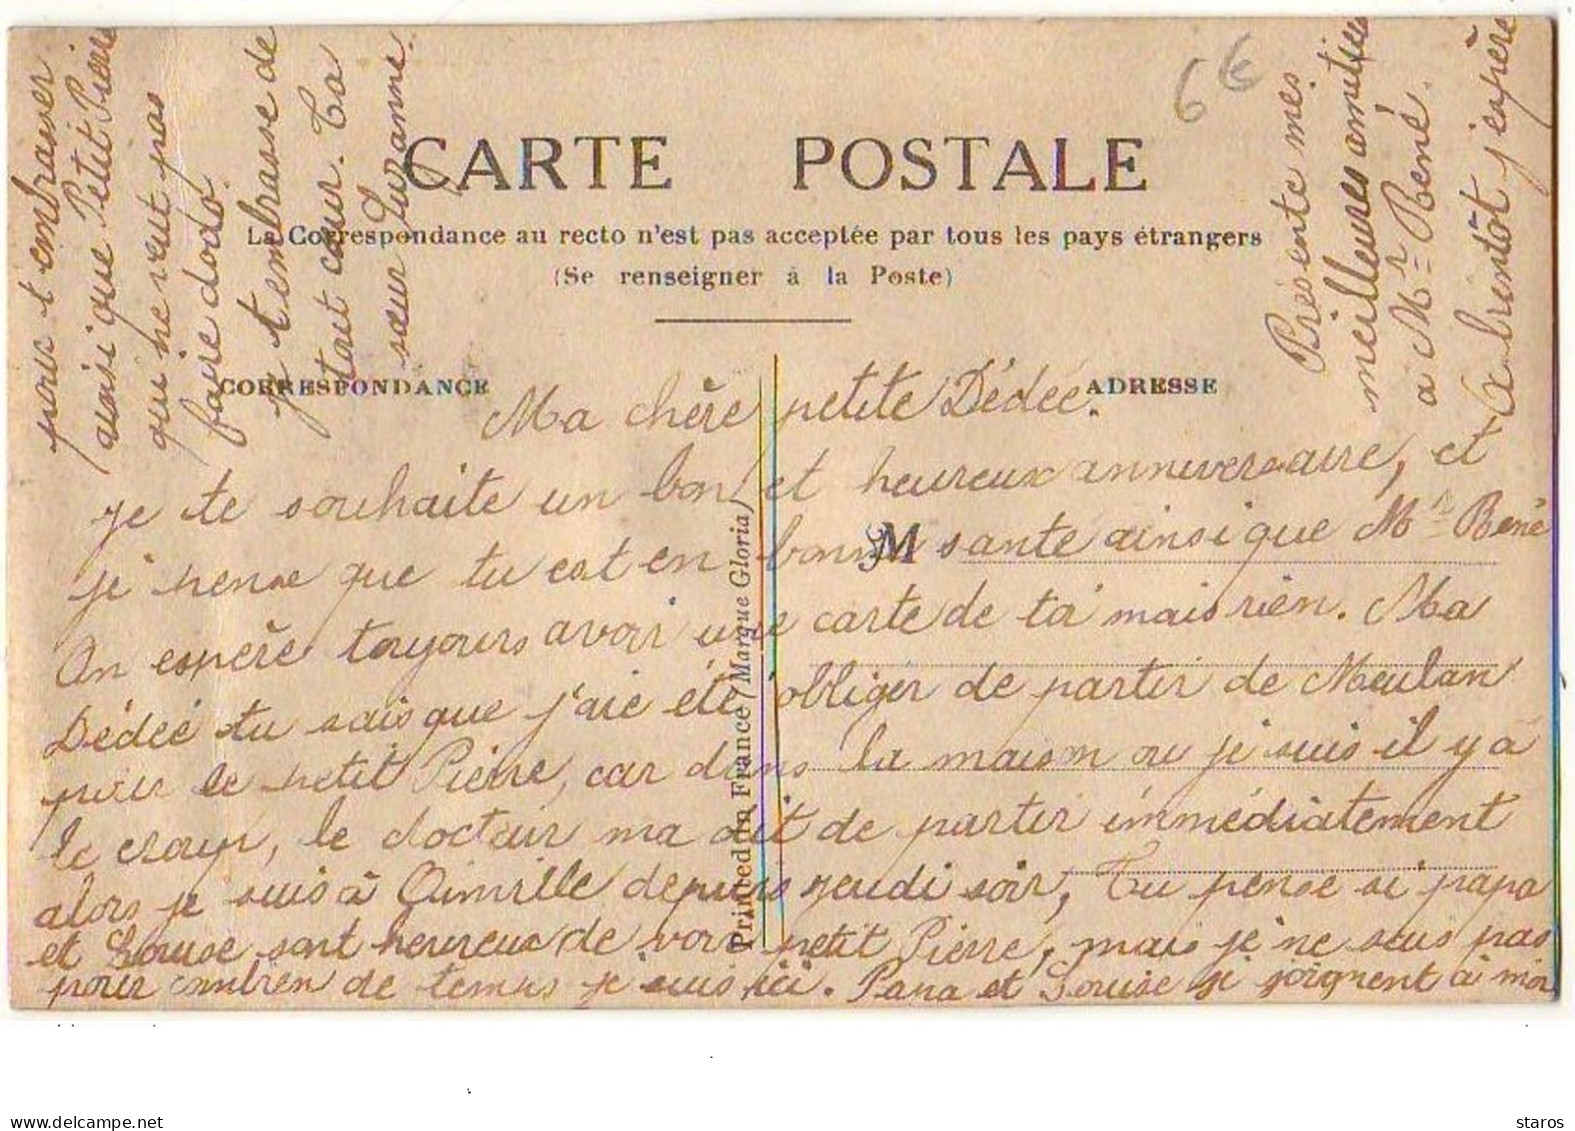 6€
CARTE POSTALE
La Correspondance au recto n'est pas acceptée par tous les pays étrangers
(Se renseigner à la Poste)
CORRESPONDANCE
ADRESSE
M
Printed in France (Marque Gloria)
Ma chère petite Dédée.
je te souhaite un bon et heureux anniversaire, et
je pense que tu est en bonne sante ainsi que Mr René
On espère toujours avoir une carte de toi mais rien. Ma
Dédée tu sais que j'aie été obliger de partir de Meulan
pour le petit Pierre, car dans la maison ou je suis il y à
le croup, le docteur ma dit de partir immédiatement
alors je suis à depuis jeudi soir, Tu pense si papa
et Louise sont heureux de voir petit Pierre, mais je ne sais pas
pour combien de temps je suis ici. Papa et Louise se joignent à moi
pour t'embrasser
ainsi que Petit Pierre
qui ne veut pas
faire dodo.
je t'embrasse de
tout cœur. Ta
sœur Suzanne.
Présente mes
meilleures amitiés
a Mr René.
A bientôt j'espère
delcampe.net
staros